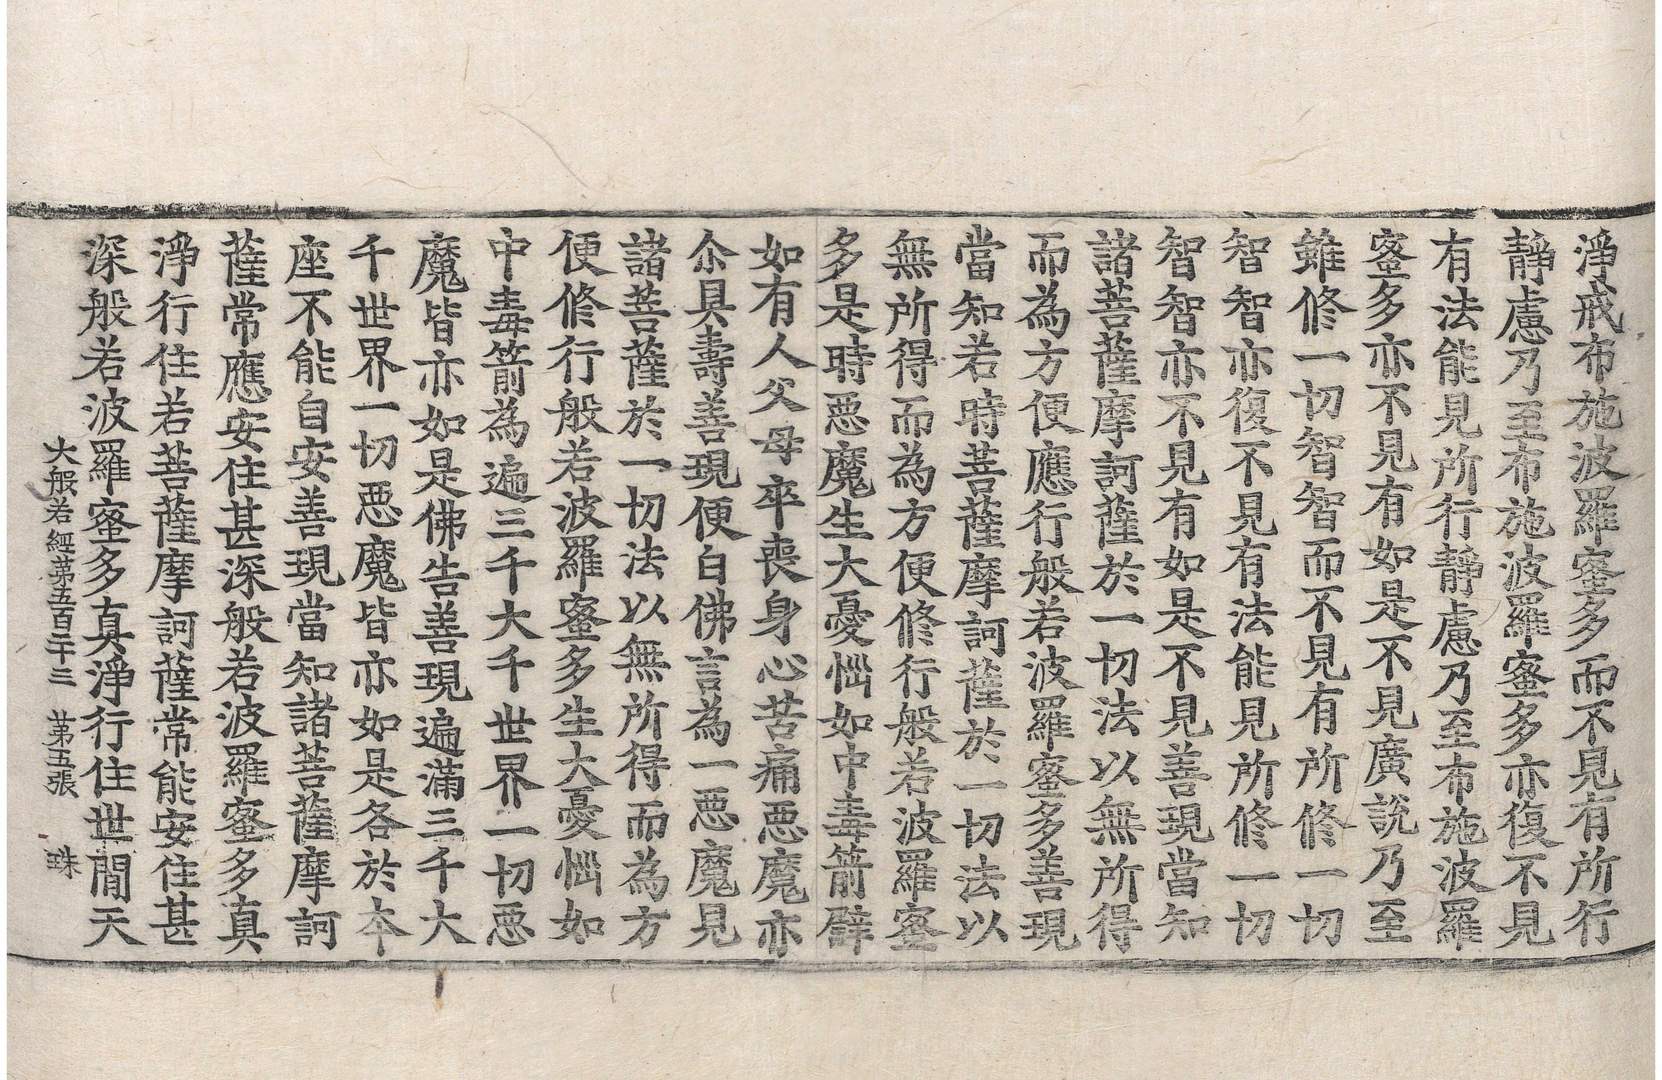 淨戒布施波羅蜜多而不見有所行
靜慮乃至布施波羅蜜多亦復不見
有法能見所行靜慮乃至布施波羅
蜜多亦不見有如是不見廣說乃至
雖修一切智智而不見有所修一切
智智亦復不見有法能見所修一切
智智亦不見有如是不見善現當知
諸菩薩摩訶薩於一切法以無所得
而為方便應行般若波羅蜜多善現
當知若時菩薩摩訶薩於一切法以
無所得而為方便修行般若波羅蜜
多是時惡魔生大憂惱如中毒箭譬
如有人父母卒喪身心苦痛惡魔亦
尒具壽善現便白佛言為一惡魔見
諸菩薩於一切法以無所得而為方
便修行般若波羅蜜多生大憂惱如
中毒箭為遍三千大千世界一切惡
魔皆亦如是佛告善現遍滿三千大
千世界一切惡魔皆亦如是各於本
座不能自安善現當知諸菩薩摩訶
薩常應安住甚深般若波羅蜜多真
淨行住若菩薩摩訶薩常能安住甚
深般若波羅蜜多真淨行住世間天
大般若經苐五百二十三 苐五張 珠